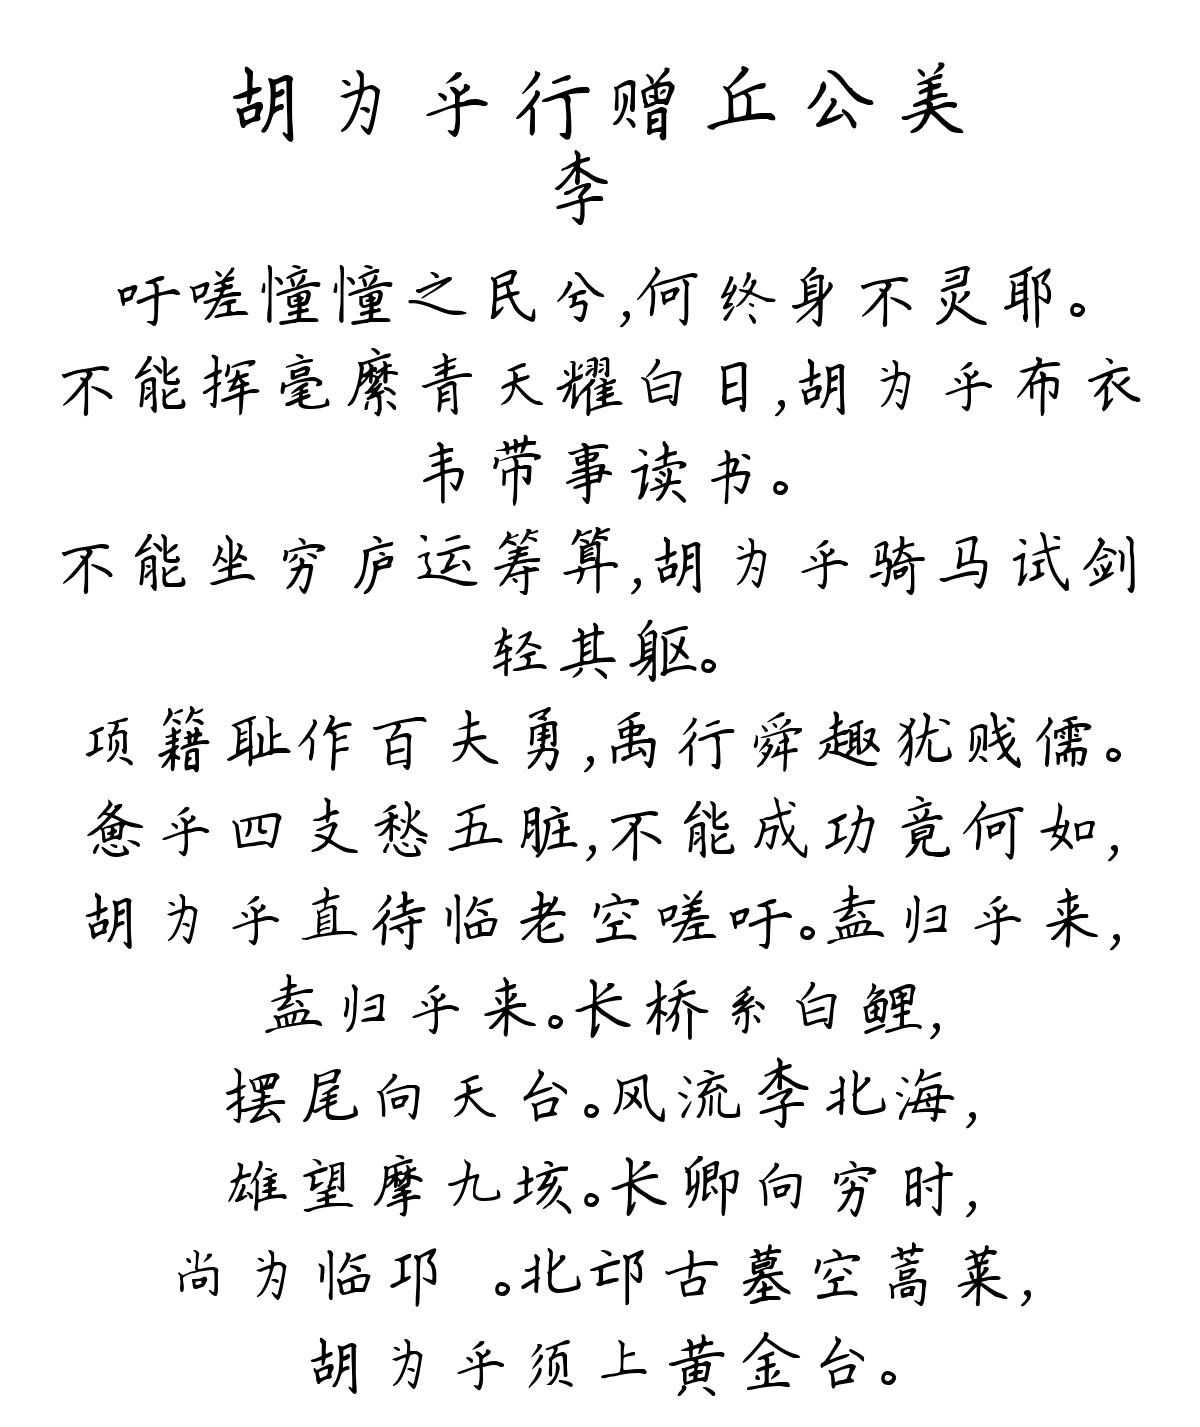 胡为乎行赠丘公美
李
吁嗟憧憧之民兮,何终身不灵耶。
不能挥毫縻青天耀白日,胡为乎布衣
韦带事读书。
不能坐穷庐运筹算,胡为乎骑马试剑
轻其躯。
项籍耻作百夫勇,禹行舜趣犹贱儒。
惫乎四支愁五脏,不能成功竟何如,
胡为乎直待临老空嗟吁。盍归乎来,
盍归乎来。长桥系白鲤,
摆尾向天台。风流李北海,
雄望摩九垓。长卿向穷时,
尚为临邛 。北邙古墓空蒿莱,
胡为乎须上黄金台。